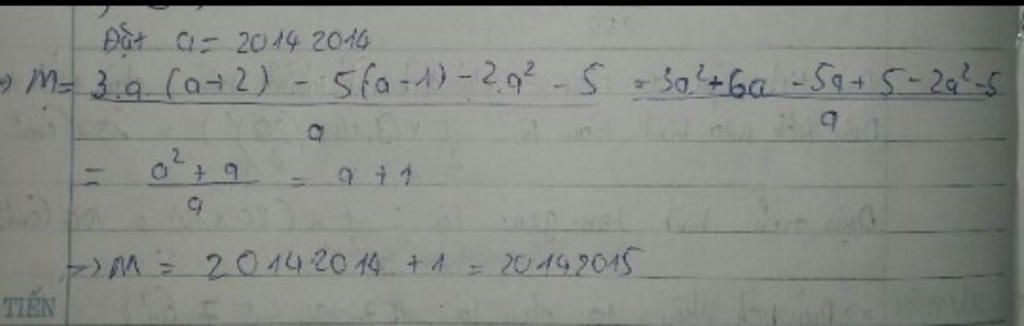 Đặt a = 20142014
=> M = 3.a (a+2) - 5(a-1) - 2.a² - 5 / a = 3a² + 6a - 5a + 5 - 2a² - 5 / a
= a² + a / a = a + 1
=> M = 20142014 + 1 = 20142015
TIẾN